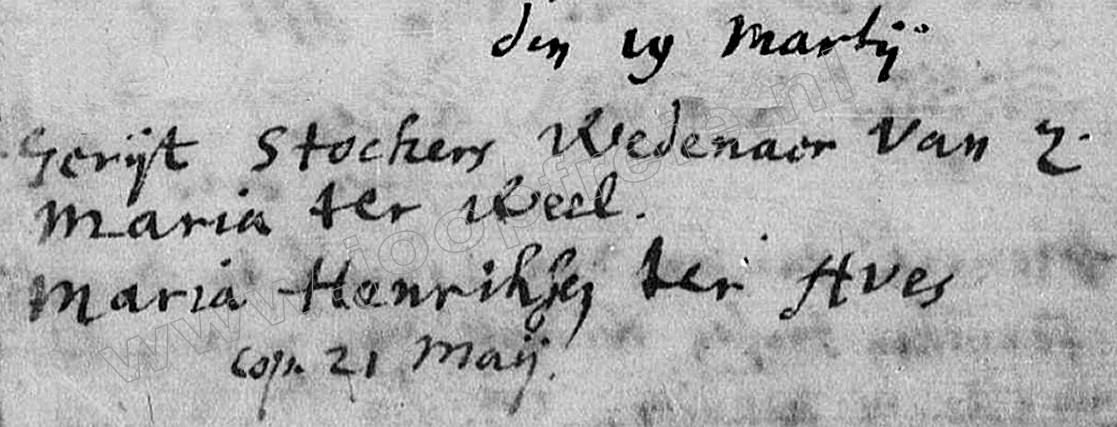 den 19 Martij
Gerijt Stockers Wedenaer Van Z.
Maria ter Weel.
Maria Henrikse ter Aves
Cop. 21 Maij.
www.joopfree.nl